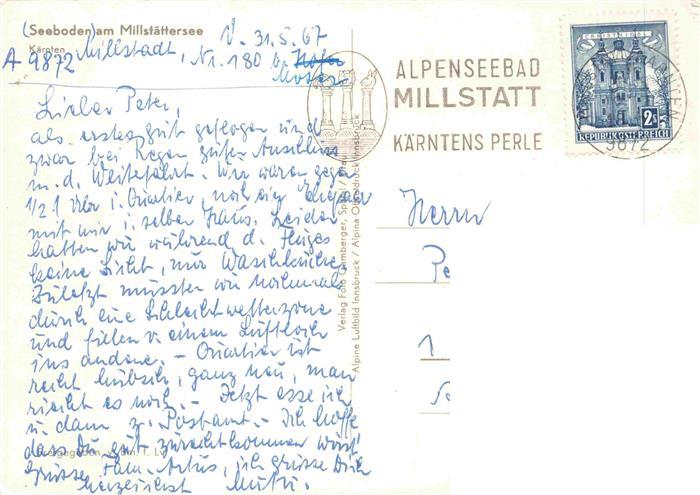 (Seeboden) am Millstättersee
Kärnten
V. 31.5.67
A 9872 Millstadt, Nr. 180 b. Hofer
Moser
Lieber Peter,
als erstes gut geflogen und
zwar bei Regen guten Anschluss
m. d. Weiterfahrt. Wir waren gegen
1/2 1 Uhr i. Quartier, noch ein Ehepaar
mit mir i. selben Haus. Leider
hatten wir während d. Fluges
keine Sicht, nur Waschküche.
Zuletzt mussten wir nochmals
durch eine Schlechtwetterzone
und fielen v. einem Luftloch
ins andere. – Quartier ist
recht hübsch, ganz neu, man
riecht es noch. – Jetzt esse ich
u. dann z. Postamt. – Ich hoffe
dass Du gut zurechtkommen wirst
Grüsse Fam. Artus, ich grüsse Dich
herzlichst Mutti.
Freigegeben v.
Verlag Foto Gamberger, Spittal / Drau
Alpine Luftbild Innsbruck / Alpine Offsetdruck Innsbruck
ALPENSEEBAD
MILLSTATT
KÄRNTENS PERLE
CHRISTKINDL
2 S
REPUBLIK ÖSTERREICH
KÄRNTEN
9872
Herrn
Pe
1